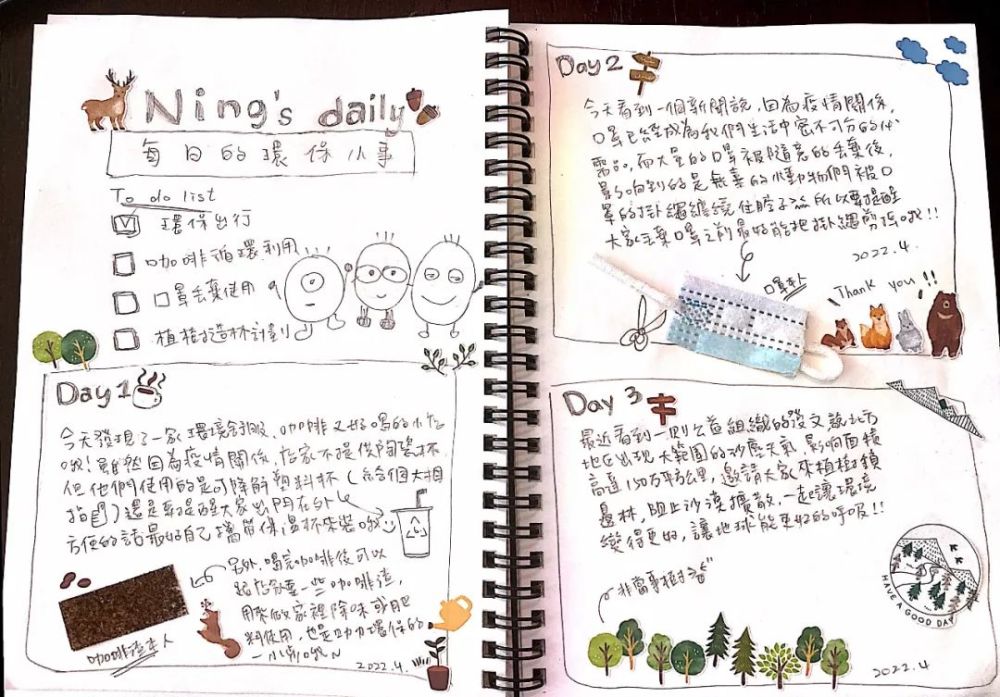 Ning's daily
每日的環保小事
To do list
環保出行
咖啡循環利用
口罩丟棄使用
植樹造林計劃
Day 1
今天發現了一家環境舒服,咖啡又好喝的小店
哦!雖然因為疫情關係,店家不提供陶瓷杯
但他們使用的是可降解塑料杯(給個大拇
指)還是要提醒大家出門在外
方便的話最好自己攜帶保溫杯來裝哦
另外,喝完咖啡後可以
跟店家要一些咖啡渣,
用來做家裡除味或肥
料使用,也是助力環保的
一小步哦~
咖啡渣本人
2022.4.
Day 2
今天看到一個新聞說,因為疫情關係,
口罩已經成為我們生活中密不可分的代
需品,而大量的口罩被隨意的丟棄後,
影響到的是無辜的小動物們被口
罩的掛繩纏繞住脖子 所以要提醒
大家丟棄口罩之前最好能把掛繩剪掉哦!!
2022.4.
口罩
Thank you!!
Day 3
最近看到一則公益組織的發文說北方
地區出現大範圍的沙塵天氣,影響面積
高達150萬平方公里,邀請大家來植樹鎖
邊林,阻止沙漠擴散,一起讓環境
變得更好,讓地球能更好的呼吸!!
HAVE A GOOD DAY
2022.4